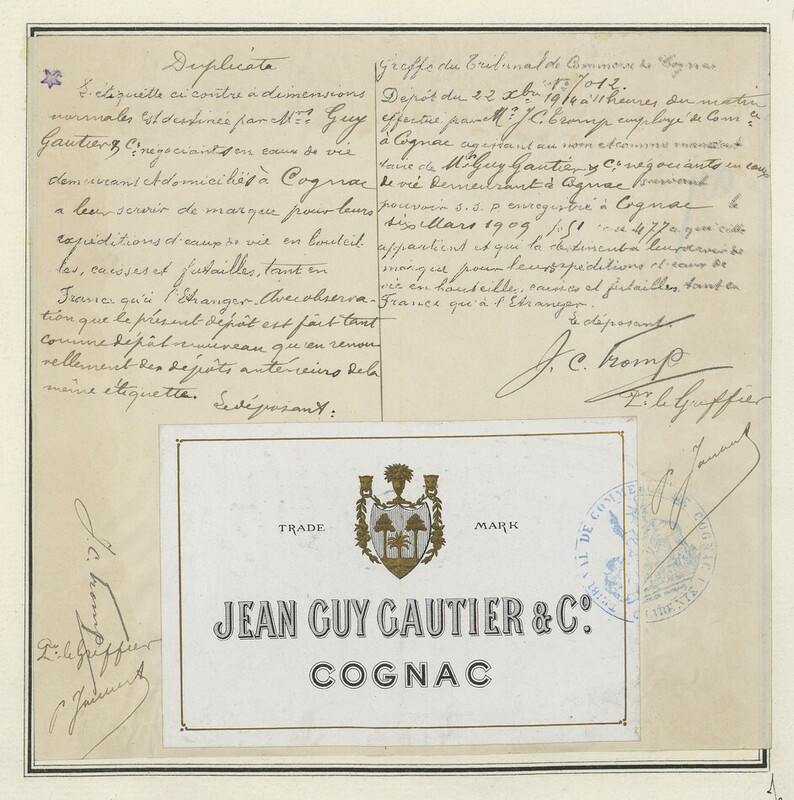 Duplicata
L'étiquette ci contre à dimensions
normales est destinée par Mrs Guy
Gautier & Co négociants en eaux de vie
demeurans et domiciliés à Cognac
a leur servir de marque pour leurs
expéditions d'eaux de vie en bouteil-
les, caisses et futailles, tant en
France qu'à l'Etranger. Avec observa-
tion que le présent dépôt est fait tant
comme dépôt nouveau qu'en renou-
vellement des dépôts antérieurs de la
même étiquette.
Le déposant:
J. C. Tromp
Pr. le Greffier
Greffe du Tribunal de Commerce de Cognac
No 7012
Dépôt du 22 xbre 1914 à 11 heures du matin
effectué par Mr J. C. Tromp employé de Comce
à Cognac agissant au nom et comme manda-
taire de Mrs Guy Gautier & Co négociants en eaux
de vie demeurant à Cognac suivant
pouvoir s. s. p. enregistré à Cognac le
six Mars 1909 fo 51 477 a qui elle
appartient et qui la destinent a leur servir de
marque pour leurs expéditions d'eaux de
vie en bouteilles, caisses et futailles, tant en
France qu'à l'Etranger.
Le déposant.
J. C. Tromp
Pr. le Greffier
TRADE MARK
JEAN GUY GAUTIER & Co.
COGNAC
TRIBUNAL DE COMMERCE DE COGNAC
CHARENTE